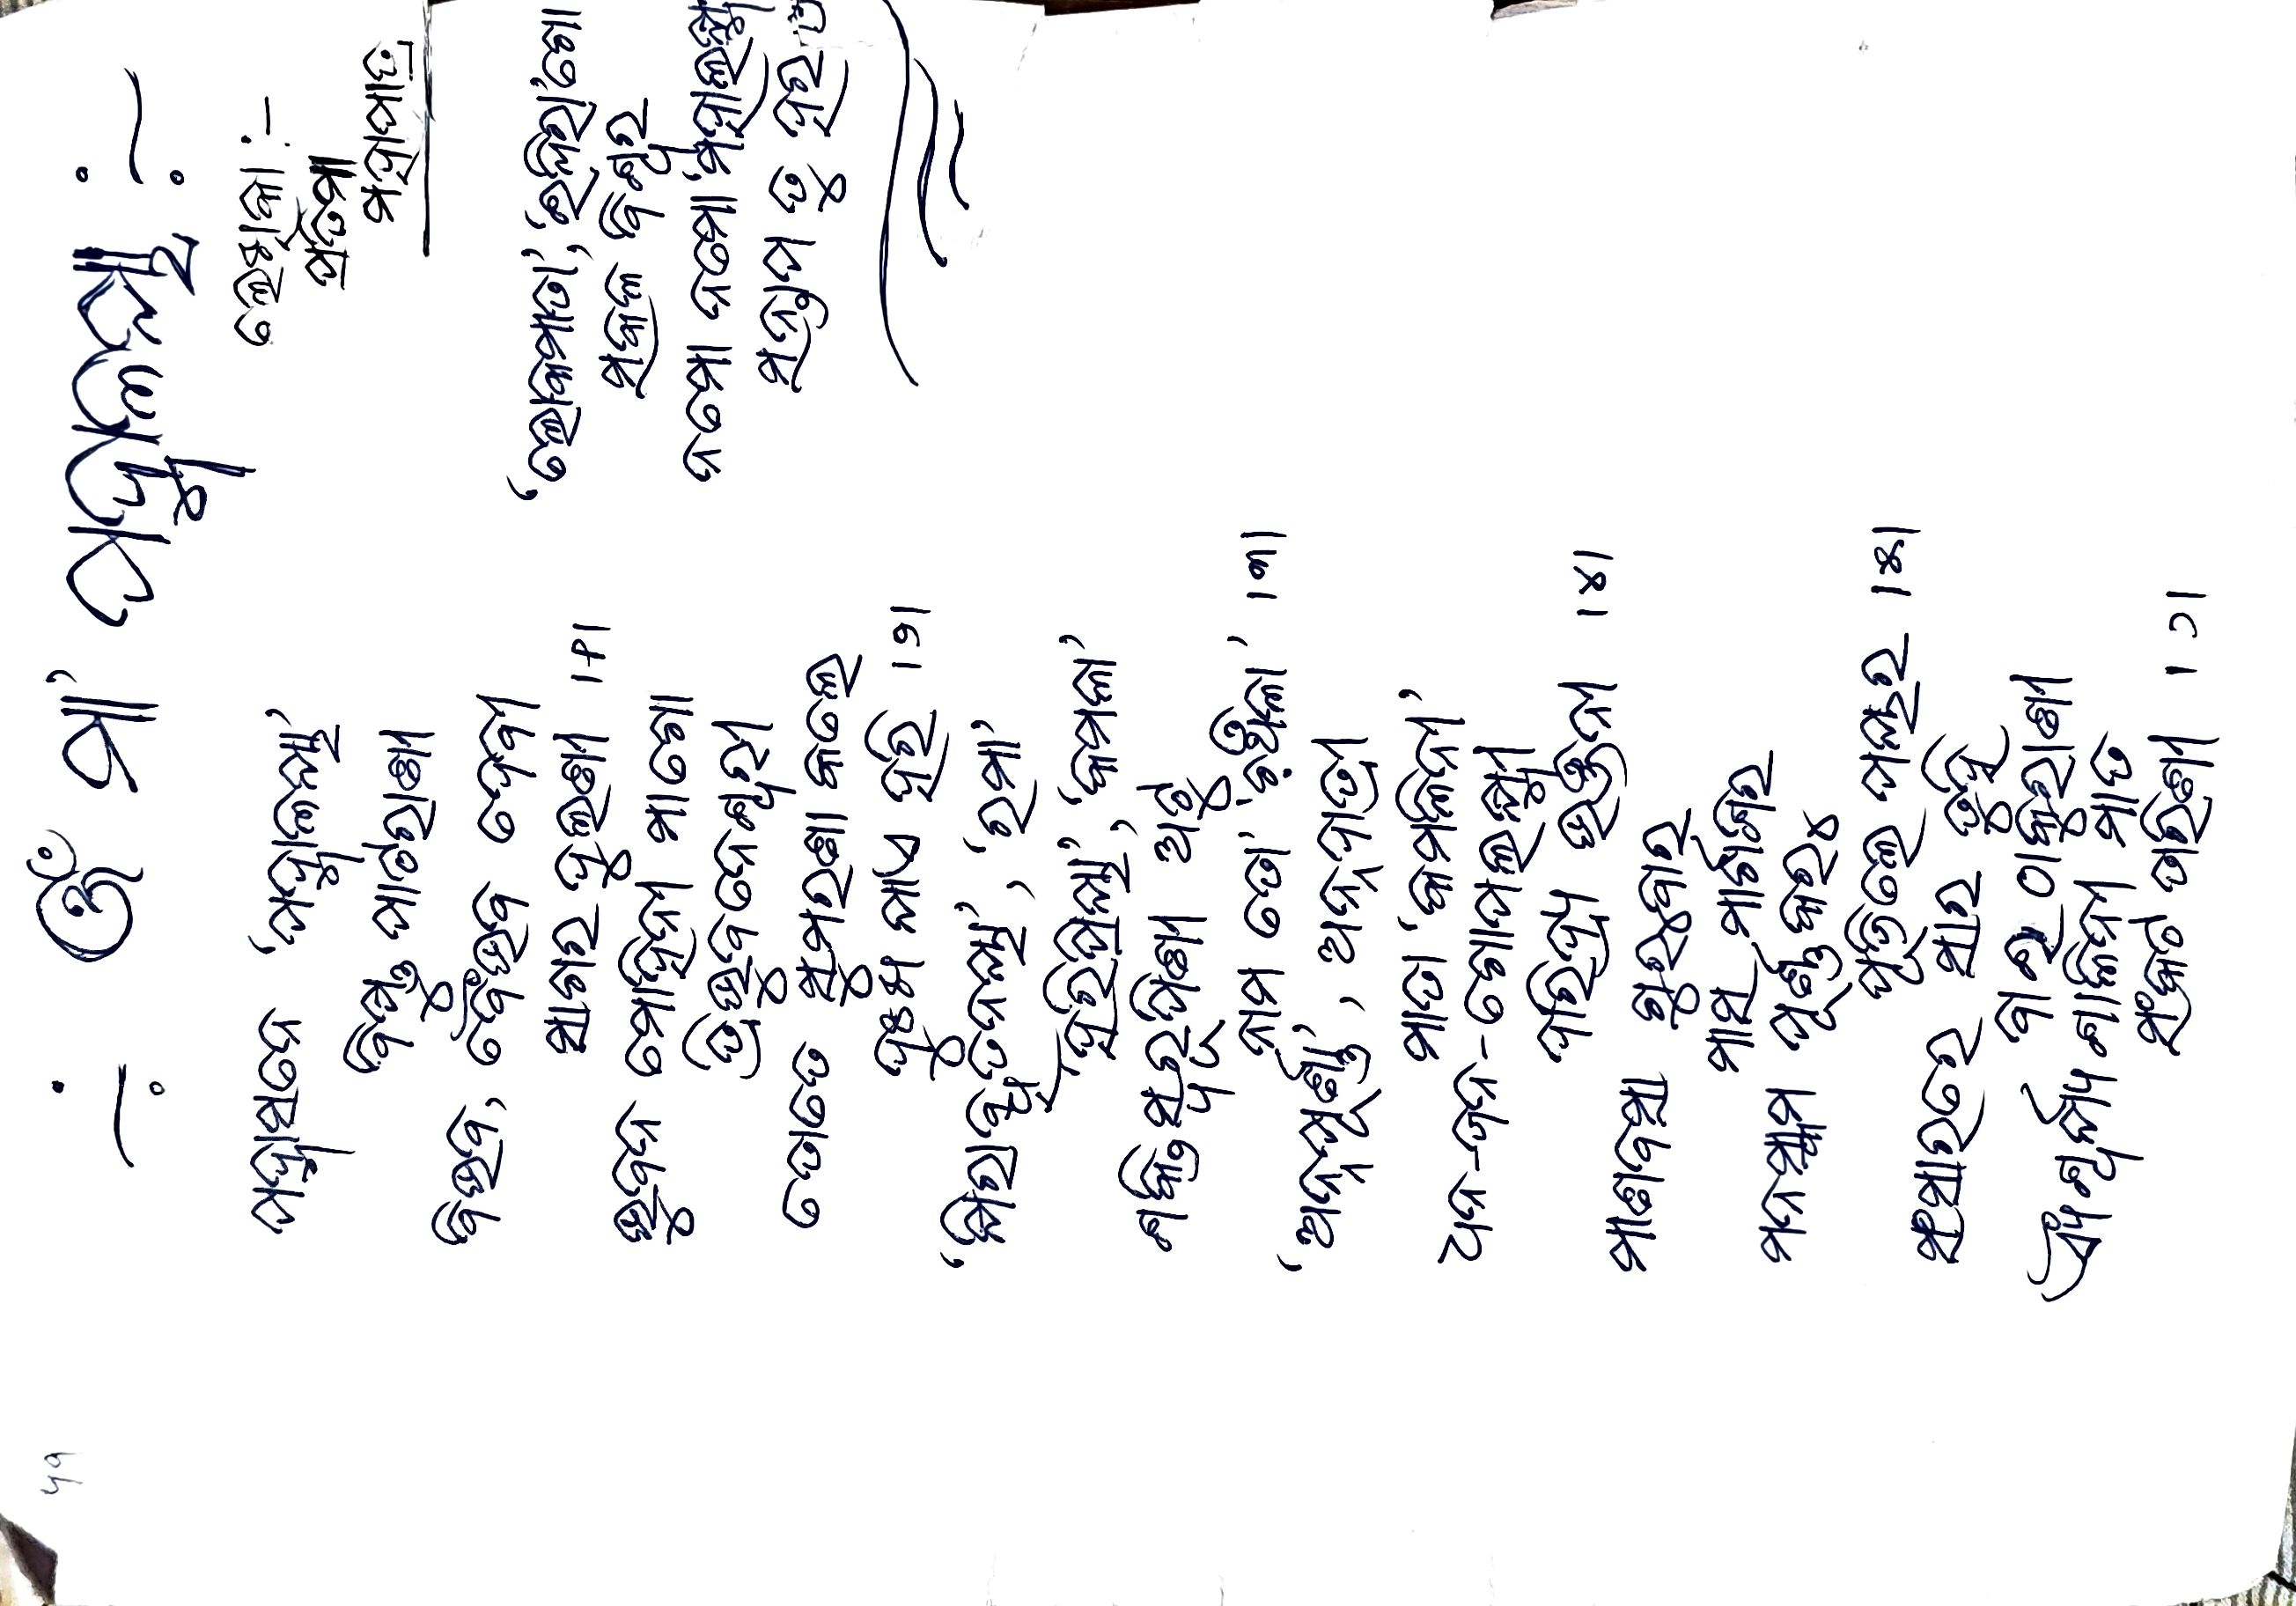 ୨୩
-: ଓଁ ମା' ପଦ୍ମାଳୟା :-
ଲେଖିକା :-
ପ୍ରତିମା
ମହାପାତ୍ର
ପଦ୍ମାସନେ ‘ପଦ୍ମାଳୟା’
ବିଷ୍ଣୁ ପାଟରାଣୀ
ବିଭବ, ବୈଭବ ଦେବୀ
ସାଗର ଦୁଲଣୀ ।୧।
ଭୁବନ ମୋହିନୀ ମାଗୋ
ତ୍ରିଭୁବନେଶ୍ୱରୀ
ତୋତେ ସୁମରଣା କଲେ
ଦୁଃଖ ଯାଏ ହରି ।୨।
‘କ୍ଷିରାବ୍ଧିତନୟା’, ‘ରମା’
‘ହରିପ୍ରିୟା’, ‘କମଳା’
ଶକ୍ତି ସ୍ୱରୂପିଣୀ ଅଟୁ
ନାମ ତୋ’ ‘ଚଞ୍ଚଳା’ ।୩।
‘ଅନ୍ନପୂର୍ଣ୍ଣା’, ଅନ୍ନଦାତ୍ରୀ
ମାତା ‘କମଳିନୀ’
ଧନ-ଜନ-ଗୋପଲକ୍ଷ୍ମୀ
ଦରିଦ୍ର୍ୟ ଭଞ୍ଜନୀ ।୪।
ମାଣବସା ଗୁରୁବାର
ମାସ ମାର୍ଗଶିର
ମନସ୍କାମ ପୂର୍ଣ୍ଣ କରୁ
ପୂଜିଲେ ପୟର ।୫।
ସଂସାରରେ ସାର ତୁହି
ବାଈ ଠାକୁରାଣୀ
ଐଶ୍ୱର୍ଯ୍ୟଶାଳିନୀ ମାତ
ସଂକଟ ତାରିଣୀ ।୬।
‘ଲୋକମାତା’, ‘ଇନ୍ଦିରା’ଗୋ
ସକଳ ବିଶ୍ୱର
ନମୋ ନମୋ ‘ମହାଲକ୍ଷ୍ମୀ
ସନ୍ତାପ ତୁ ହର